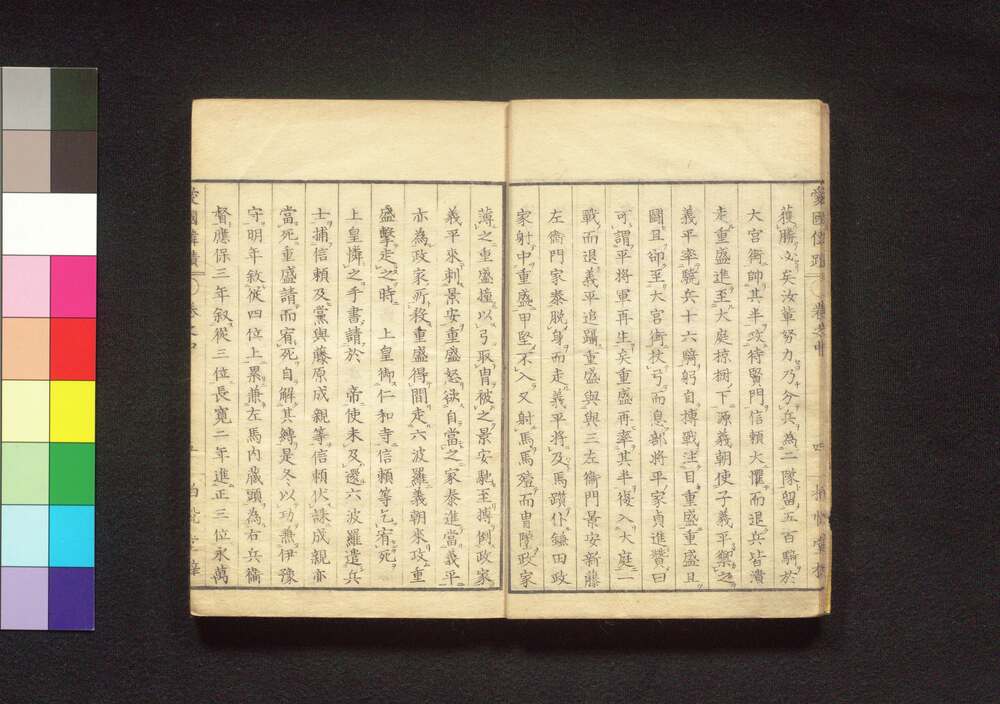 獲勝必矣汝輩努力乃分兵為二隊留五百騎於
大宮衛帥其半攻待賢門信頼大懼而退兵皆潰
走重盛進至大庭椋樹下源義朝使子義平禦之
義平率驍兵十六騎躬自搏戰注目重盛重盛且
鬪且卻至大宮衛杖弓而息部將平家貞進贊曰
可謂平將軍再生矣重盛再率其半復入大庭一
戰而退義平追躡重盛與與三左衞門景安新藤
左衞門家泰脱身而走義平將及馬躓仆鎌田政
家射中重盛甲堅不入又射馬馬殪而冑墜政家
薄之重盛撞以弓取冑被之景安馳至搏倒政家
義平來刺景安重盛怒欲自當之家泰進當義平
亦為政家所殺重盛得間走六波羅義朝來攻重
盛擊走之時 上皇御仁和寺信頼等乞宥死
上皇憐之手書請於 帝使未及還六波羅遣兵
士捕信頼及黨與藤原成親等信頼伏誅成親亦
當死重盛請而宥死自解其縛是冬以功兼伊豫
守明年敘從四位上累兼左馬内藏頭為右兵衞
督應保三年叙從三位長寛二年進正三位永萬